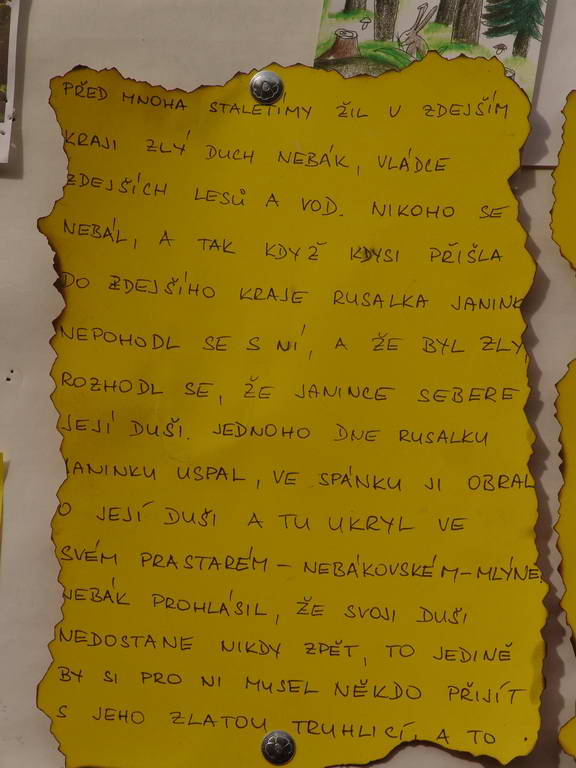 PŘED MNOHA STALETÍMY ŽIL V ZDEJŠÍM
KRAJI ZLÝ DUCH NEBÁK, VLÁDCE
ZDEJŠÍCH LESŮ A VOD. NIKOHO SE
NEBÁL, A TAK KDYŽ KDYSI PŘIŠLA
DO ZDEJŠÍHO KRAJE RUSALKA JANINK
NEPOHODL SE S NÍ, A ŽE BYL ZLÝ,
ROZHODL SE, ŽE JANINCE SEBERE
JEJÍ DUŠI. JEDNOHO DNE RUSALKU
JANINKU USPAL, VE SPÁNKU JI OBRAL
O JEJÍ DUŠI A TU UKRYL VE
SVÉM PRASTARÉM - NEBÁKOVSKÉM - MLÝNE.
NEBÁK PROHLÁSIL, ŽE SVOJI DUŠI
NEDOSTANE NIKDY ZPĚT, TO JEDINĚ
BY SI PRO NI MUSEL NĚKDO PŘIJÍT
S JEHO ZLATOU TRUHLICÍ, A TO